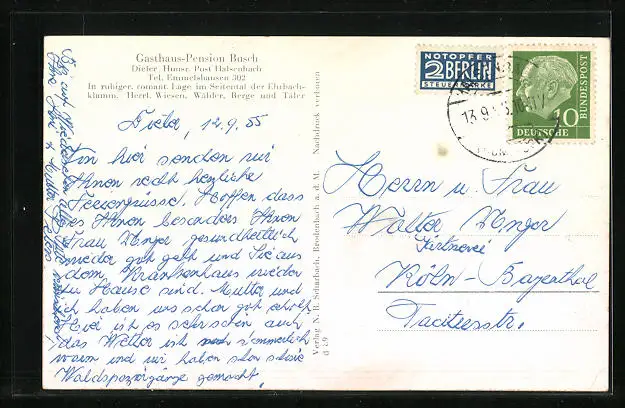 Gasthaus-Pension Busch
Dieter Hunsr. Post Halsenbach
Tel. Emmelshausen 302
In ruhiger, romant. Lage im Seitental der Ehrbach-
klamm. Herrl. Wiesen, Wälder, Berge und Täler
NOTOPFER
2 BERLIN
STEUERMARKE
10
DEUTSCHE
BUNDESPOST
12.9.55
Von hier senden wir
Ihnen recht herzliche
Feriengrüsse. Hoffen dass
es Ihnen besonders Ihrer
Frau Unger gesundheitlich
wieder gut geht und Sie aus
dem Krankenhaus wieder
zu Hause sind. Mutter und
ich haben uns schon gut erholt
Hier ist es sehr schön auch
das Wetter ist noch
warm und wir haben schon schöne
Waldspaziergänge gemacht.
Bis auf Wiedersehen
Verlag N. B. Scharbach, Brodenbach a. d. M. Nachdruck verboten
d 89
Herrn u. Frau
Walter Unger
Gärtnerei
Köln-Bayenthal
Tacitusstr.